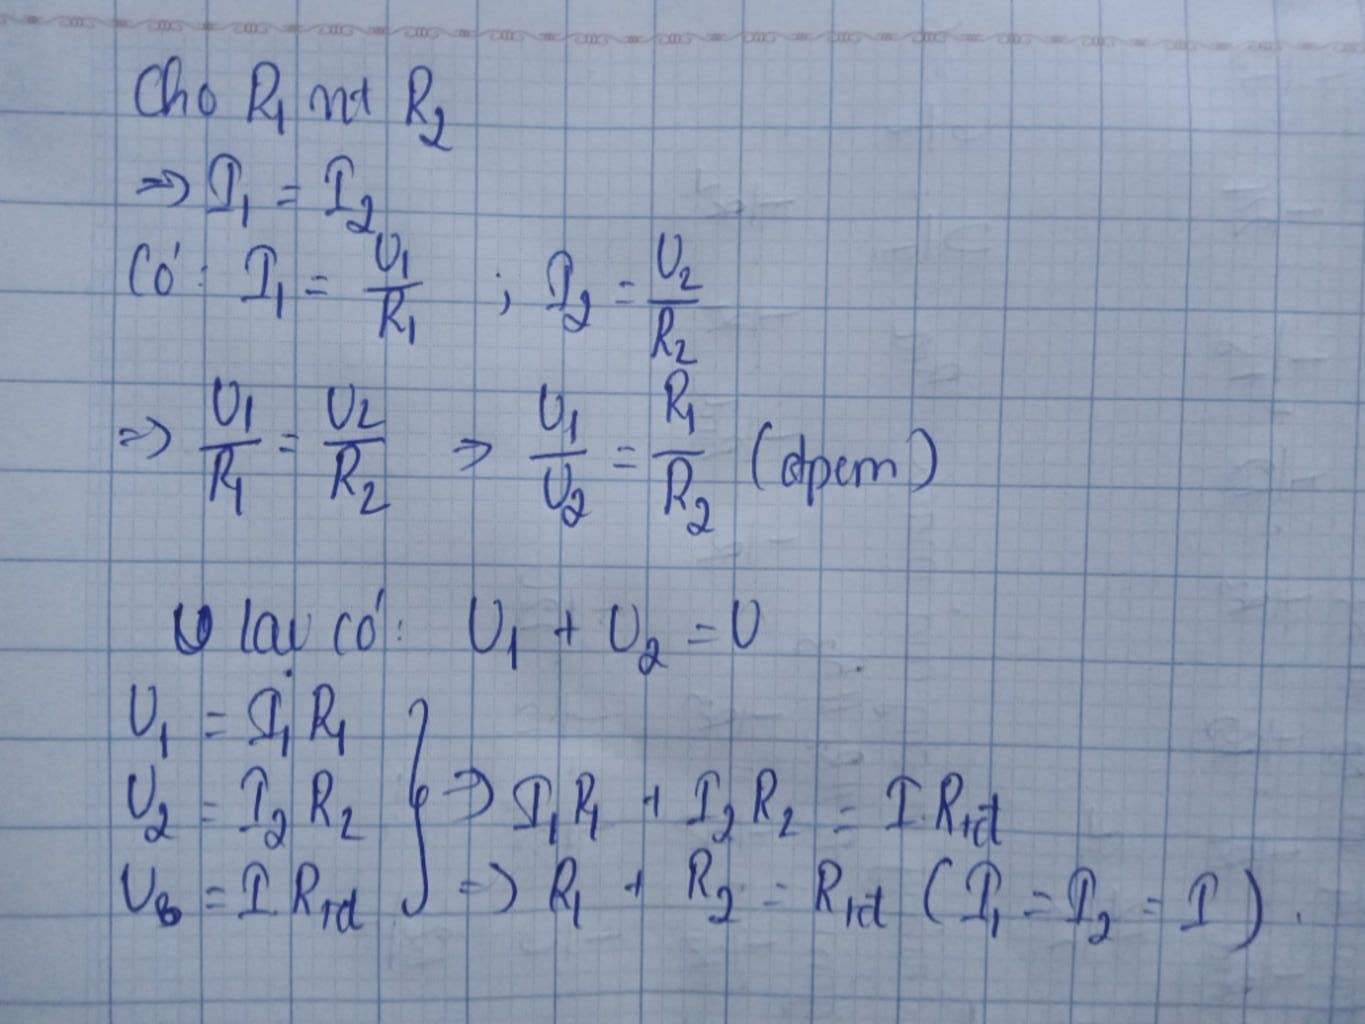 Cho R₁ nt R₂
=> I₁ = I₂
Có: I₁ = U₁/R₁ ; I₂ = U₂/R₂
=> U₁/R₁ = U₂/R₂ => U₁/U₂ = R₁/R₂ (đpcm)
lại có: U₁ + U₂ = U
U₁ = I₁ R₁
U₂ = I₂ R₂ } => I₁R₁ + I₂R₂ = I.Rtđ
= I.Rtđ => R₁ + R₂ = Rtđ (I₁ = I₂ = I).